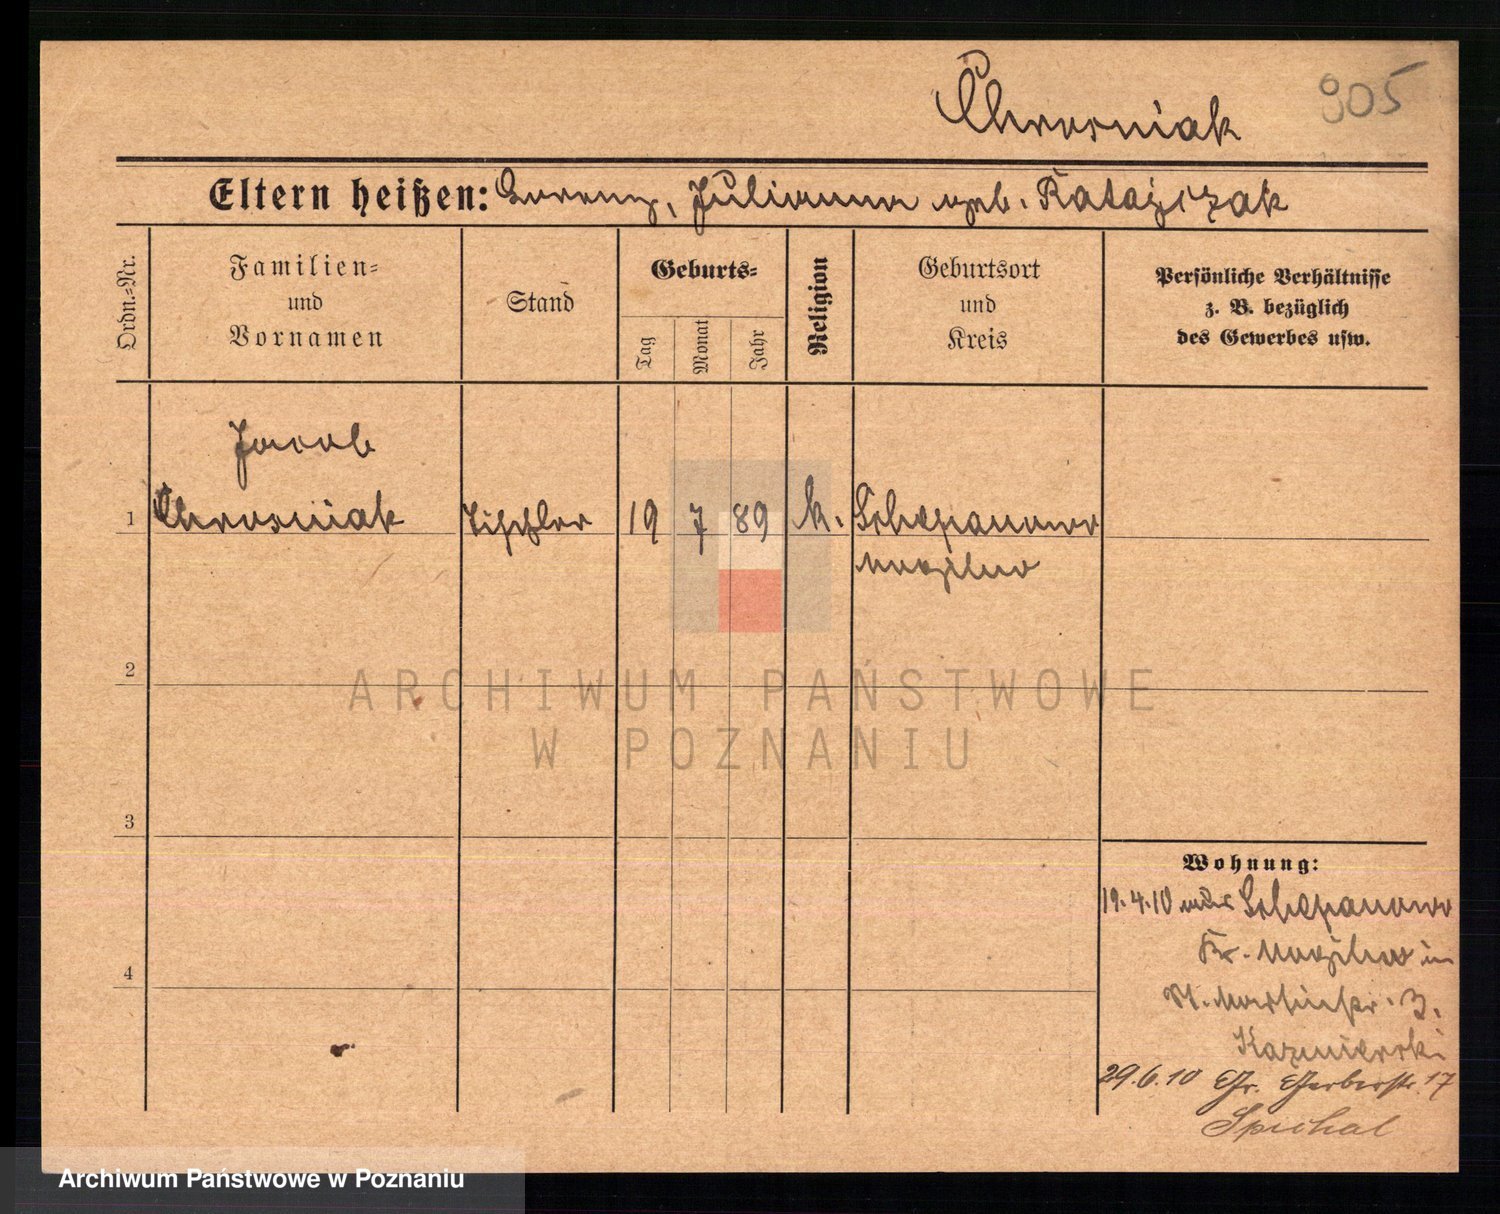 Chrosniak 905
Eltern heißen: Lorenz, Julianna geb. Ratajczak
Ordn.-Nr.
Familien-
und
Vornamen
Stand
Geburts-
Tag
Monat
Jahr
Religion
Geburtsort
und
Kreis
Persönliche Verhältnisse
z. B. bezüglich
des Gewerbes usw.
Jacob
1 Chrosniak Tischler 19 7 89 k. Schepanowo
Mogilno
2
3
4
Wohnung:
19.4.10 aus Schepanowo
Kr. Mogilno in
St. Martinstr. 3.
Kazmierski
29.6.10 Gr. Gerberstr. 17
Spichal
ARCHIWUM PAŃSTWOWE
W POZNANIU
Archiwum Państwowe w Poznaniu